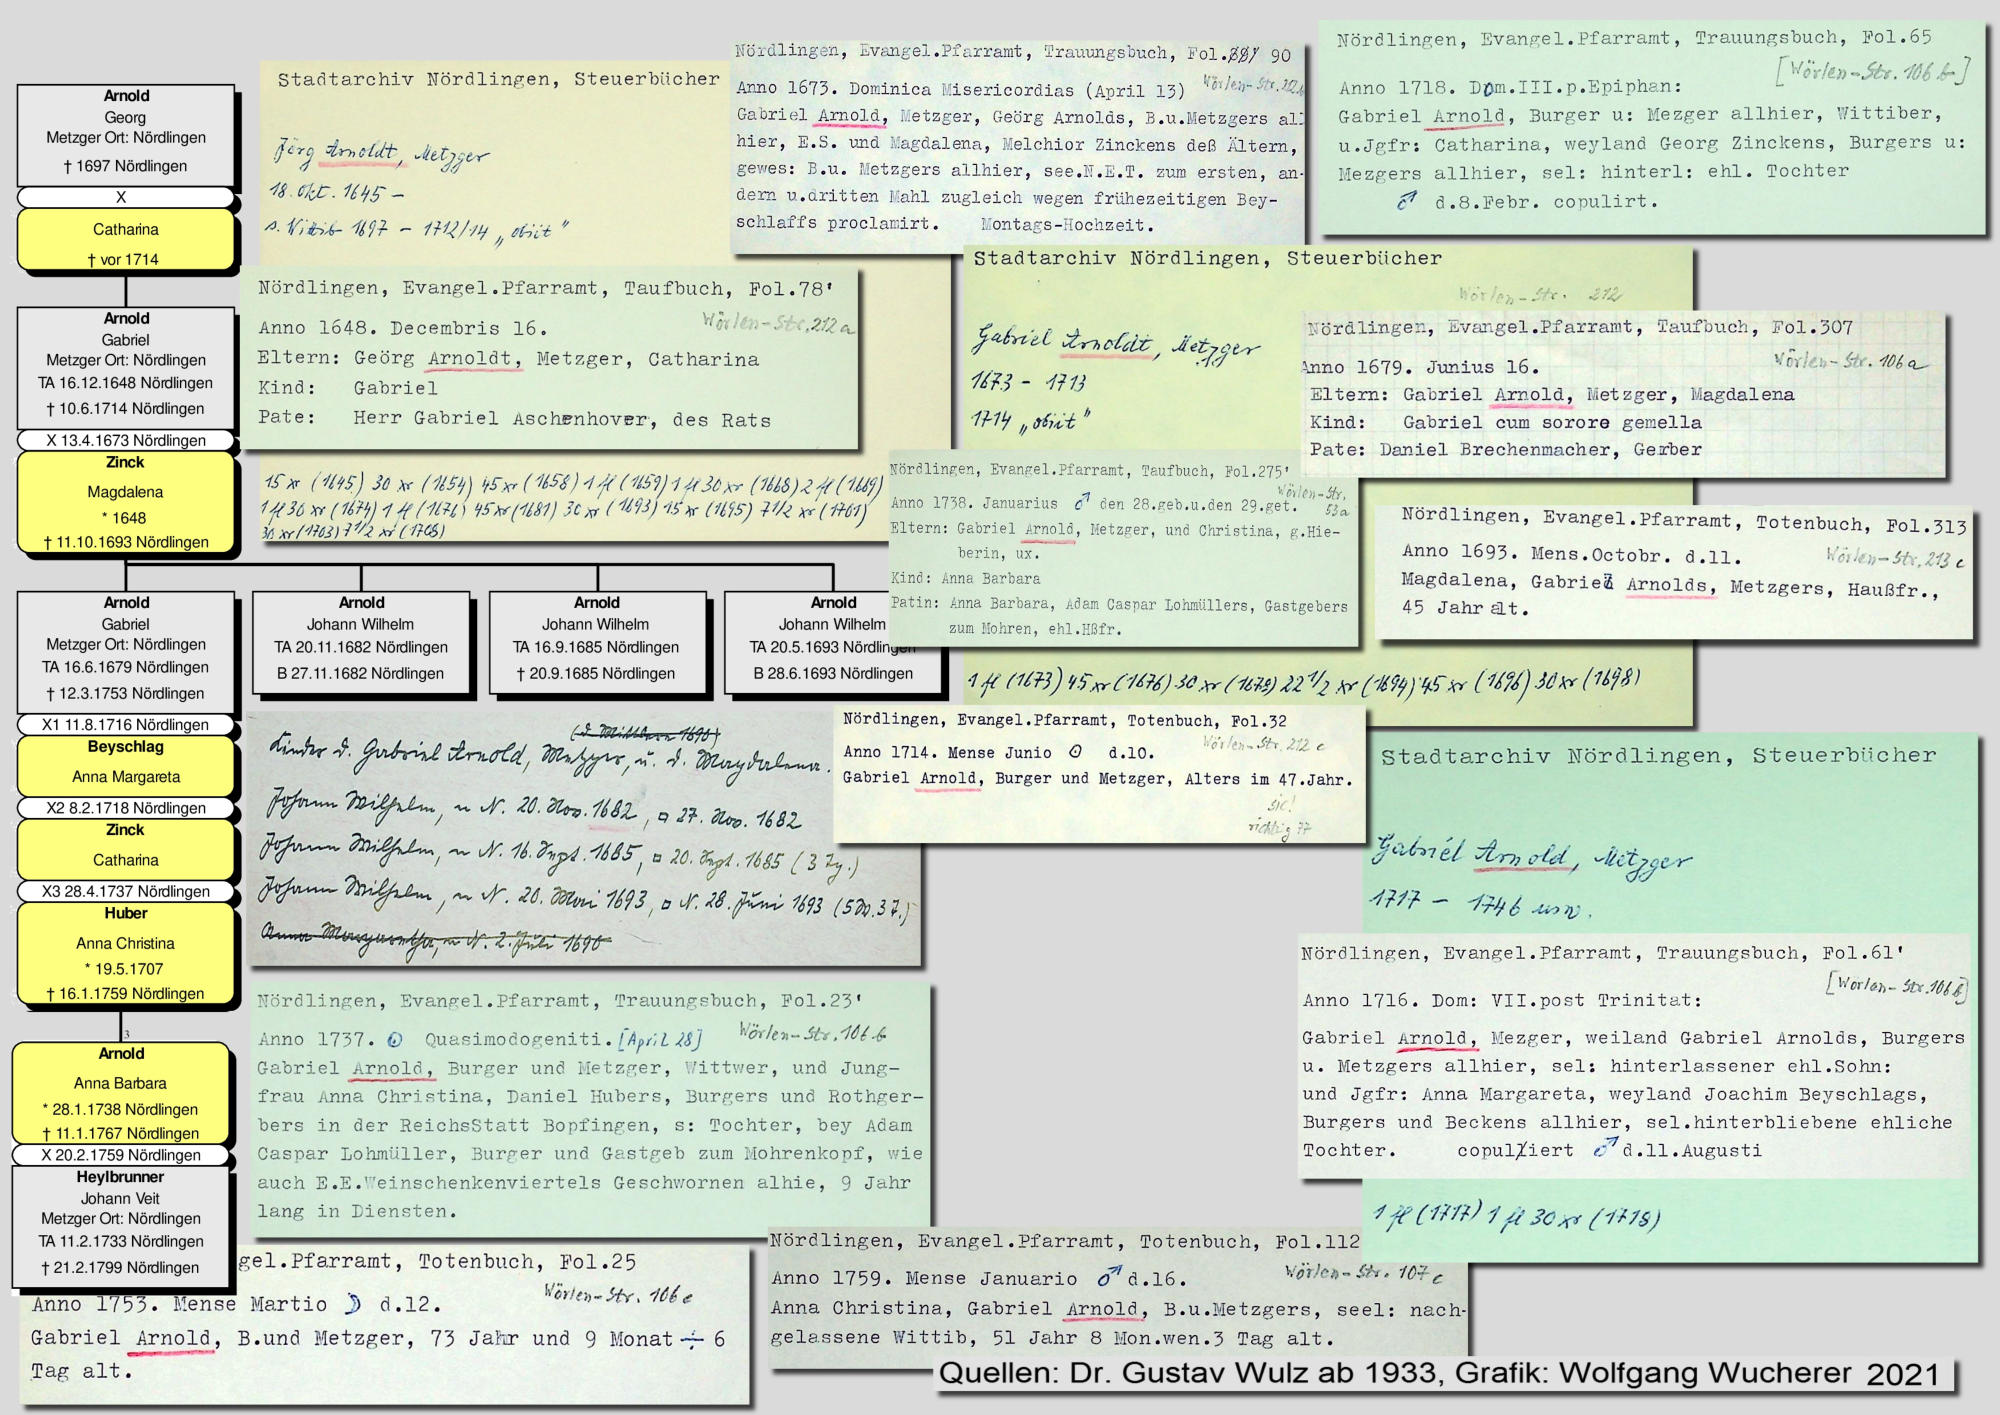 Arnold
Georg
Metzger Ort: Nördlingen
† 1697 Nördlingen
X
Catharina
† vor 1714
Arnold
Gabriel
Metzger Ort: Nördlingen
TA 16.12.1648 Nördlingen
† 10.6.1714 Nördlingen
X 13.4.1673 Nördlingen
Zinck
Magdalena
* 1648
† 11.10.1693 Nördlingen
Arnold
Gabriel
Metzger Ort: Nördlingen
TA 16.6.1679 Nördlingen
† 12.3.1753 Nördlingen
X1 11.8.1716 Nördlingen
Beyschlag
Anna Margareta
X2 8.2.1718 Nördlingen
Zinck
Catharina
X3 28.4.1737 Nördlingen
Huber
Anna Christina
* 19.5.1707
† 16.1.1759 Nördlingen
3
Arnold
Anna Barbara
* 28.1.1738 Nördlingen
† 11.1.1767 Nördlingen
X 20.2.1759 Nördlingen
Heylbrunner
Johann Veit
Metzger Ort: Nördlingen
TA 11.2.1733 Nördlingen
† 21.2.1799 Nördlingen
Arnold
Johann Wilhelm
TA 20.11.1682 Nördlingen
B 27.11.1682 Nördlingen
Arnold
Johann Wilhelm
TA 16.9.1685 Nördlingen
† 20.9.1685 Nördlingen
Arnold
Johann Wilhelm
TA 20.5.1693 Nördlingen
B 28.6.1693 Nördlingen
Stadtarchiv Nördlingen, Steuerbücher
Jörg Arnoldt, Metzger
18. Okt. 1645 –
s. Wittib 1697 – 1712/14 „obiit"
15 xr (1645) 30 xr (1654) 45 xr (1658) 1 fl (1659) 1 fl 30 xr (1668) 2 fl (1669)
1 fl 30 xr (1674) 1 fl (1676) 45 xr (1681) 30 xr (1693) 15 xr (1695) 7 1/2 xr (1701)
30 xr (1703) 7 1/2 xr (1708)
Nördlingen, Evangel.Pfarramt, Trauungsbuch, Fol. 90
Wörlen-Str. 212
Anno 1673. Dominica Misericordias (April 13)
Gabriel Arnold, Metzger, Geörg Arnolds, B.u.Metzgers al
hier, E.S. und Magdalena, Melchior Zinckens deß Ältern,
gewes: B.u. Metzgers allhier, see.N.E.T. zum ersten, an-
dern u.dritten Mahl zugleich wegen frühezeitigen Bey-
schlaffs proclamirt. Montags-Hochzeit.
Nördlingen, Evangel.Pfarramt, Trauungsbuch, Fol.65
[Wörlen-Str. 106 b]
Anno 1718. Dom.III.p.Epiphan:
Gabriel Arnold, Burger u: Mezger allhier, Wittiber,
u.Jgfr: Catharina, weyland Georg Zinckens, Burgers u:
Mezgers allhier, sel: hinterl: ehl. Tochter
♂ d.8.Febr. copulirt.
Nördlingen, Evangel.Pfarramt, Taufbuch, Fol.78'
Wörlen-Str. 212 a
Anno 1648. Decembris 16.
Eltern: Geörg Arnoldt, Metzger, Catharina
Kind: Gabriel
Pate: Herr Gabriel Aschenhover, des Rats
Stadtarchiv Nördlingen, Steuerbücher
Wörlen-Str. 212
Gabriel Arnoldt, Metzger
1673 – 1713
1714 „obiit"
1 fl (1673) 45 xr (1676) 30 xr (1679) 22 1/2 xr (1694) 45 xr (1696) 30 xr (1698)
Nördlingen, Evangel.Pfarramt, Taufbuch, Fol.307
Wörlen-Str. 106 a
Anno 1679. Junius 16.
Eltern: Gabriel Arnold, Metzger, Magdalena
Kind: Gabriel cum sorore gemella
Pate: Daniel Brechenmacher, Gerber
Nördlingen, Evangel.Pfarramt, Taufbuch, Fol.275'
Wörlen-Str. 53a
Anno 1738. Januarius ♂ den 28.geb.u.den 29.get.
Eltern: Gabriel Arnold, Metzger, und Christina, g.Hie-
berin, ux.
Kind: Anna Barbara
Patin: Anna Barbara, Adam Caspar Lohmüllers, Gastgebers
zum Mohren, ehl.Hßfr.
Nördlingen, Evangel.Pfarramt, Totenbuch, Fol.313
Wörlen-Str. 213 c
Anno 1693. Mens.Octobr. d.11.
Magdalena, Gabriel Arnolds, Metzgers, Haußfr.,
45 Jahr alt.
(d. Mittlern 1690)
Kinder d. Gabriel Arnold, Metzger, u. d. Magdalena.
Johann Wilhelm, ~ N. 20. Nov. 1682, □ 27. Nov. 1682
Johann Wilhelm, ~ N. 16. Sept. 1685, □ 20. Sept. 1685 (3 Tg.)
Johann Wilhelm, ~ N. 20. Mai 1693, □ N. 28. Juni 1693 (5 W. 3 T.)
Anna Margaretha, ~ N. 2. Juli 1690
Nördlingen, Evangel.Pfarramt, Totenbuch, Fol.32
Wörlen-Str. 212 c
Anno 1714. Mense Junio ☉ d.10.
Gabriel Arnold, Burger und Metzger, Alters im 47.Jahr.
sic!
richtig 77
Stadtarchiv Nördlingen, Steuerbücher
Gabriel Arnold, Metzger
1717 – 1746 usw.
1 fl (1717) 1 fl 30 xr (1718)
Nördlingen, Evangel.Pfarramt, Trauungsbuch, Fol.61'
[Wörlen-Str. 106 b]
Anno 1716. Dom: VII.post Trinitat:
Gabriel Arnold, Mezger, weiland Gabriel Arnolds, Burgers
u. Metzgers allhier, sel: hinterlassener ehl.Sohn:
und Jgfr: Anna Margareta, weyland Joachim Beyschlags,
Burgers und Beckens allhier, sel.hinterbliebene ehliche
Tochter. copuliert ♂ d.11.Augusti
Nördlingen, Evangel.Pfarramt, Trauungsbuch, Fol.23'
Anno 1737. ☉ Quasimodogeniti. [April 28] Wörlen-Str. 106 b
Gabriel Arnold, Burger und Metzger, Wittwer, und Jung-
frau Anna Christina, Daniel Hubers, Burgers und Rothger-
bers in der ReichsStatt Bopfingen, s: Tochter, bey Adam
Caspar Lohmüller, Burger und Gastgeb zum Mohrenkopf, wie
auch E.E.Weinschenkenviertels Geschwornen alhie, 9 Jahr
lang in Diensten.
gel.Pfarramt, Totenbuch, Fol.25
Wörlen-Str. 106 c
Anno 1753. Mense Martio ☽ d.12.
Gabriel Arnold, B.und Metzger, 73 Jahr und 9 Monat ÷ 6
Tag alt.
Nördlingen, Evangel.Pfarramt, Totenbuch, Fol.112
Wörlen-Str. 107 c
Anno 1759. Mense Januario ♂ d.16.
Anna Christina, Gabriel Arnold, B.u.Metzgers, seel: nach-
gelassene Wittib, 51 Jahr 8 Mon.wen.3 Tag alt.
Quellen: Dr. Gustav Wulz ab 1933, Grafik: Wolfgang Wucherer 2021